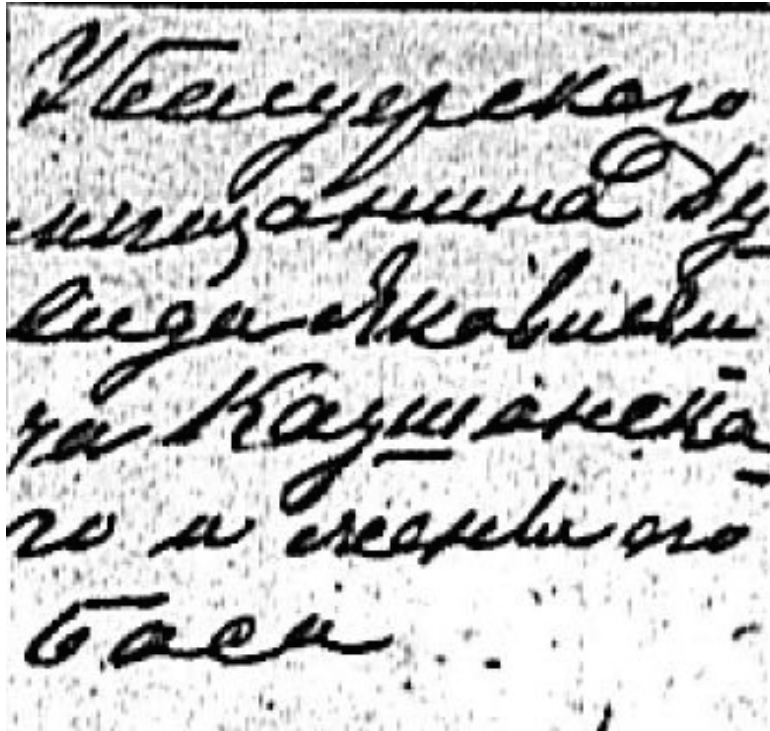 У Бендерского
мещанина Да
вида Яковлеви
ча Каушанска
го и жены его
Баси